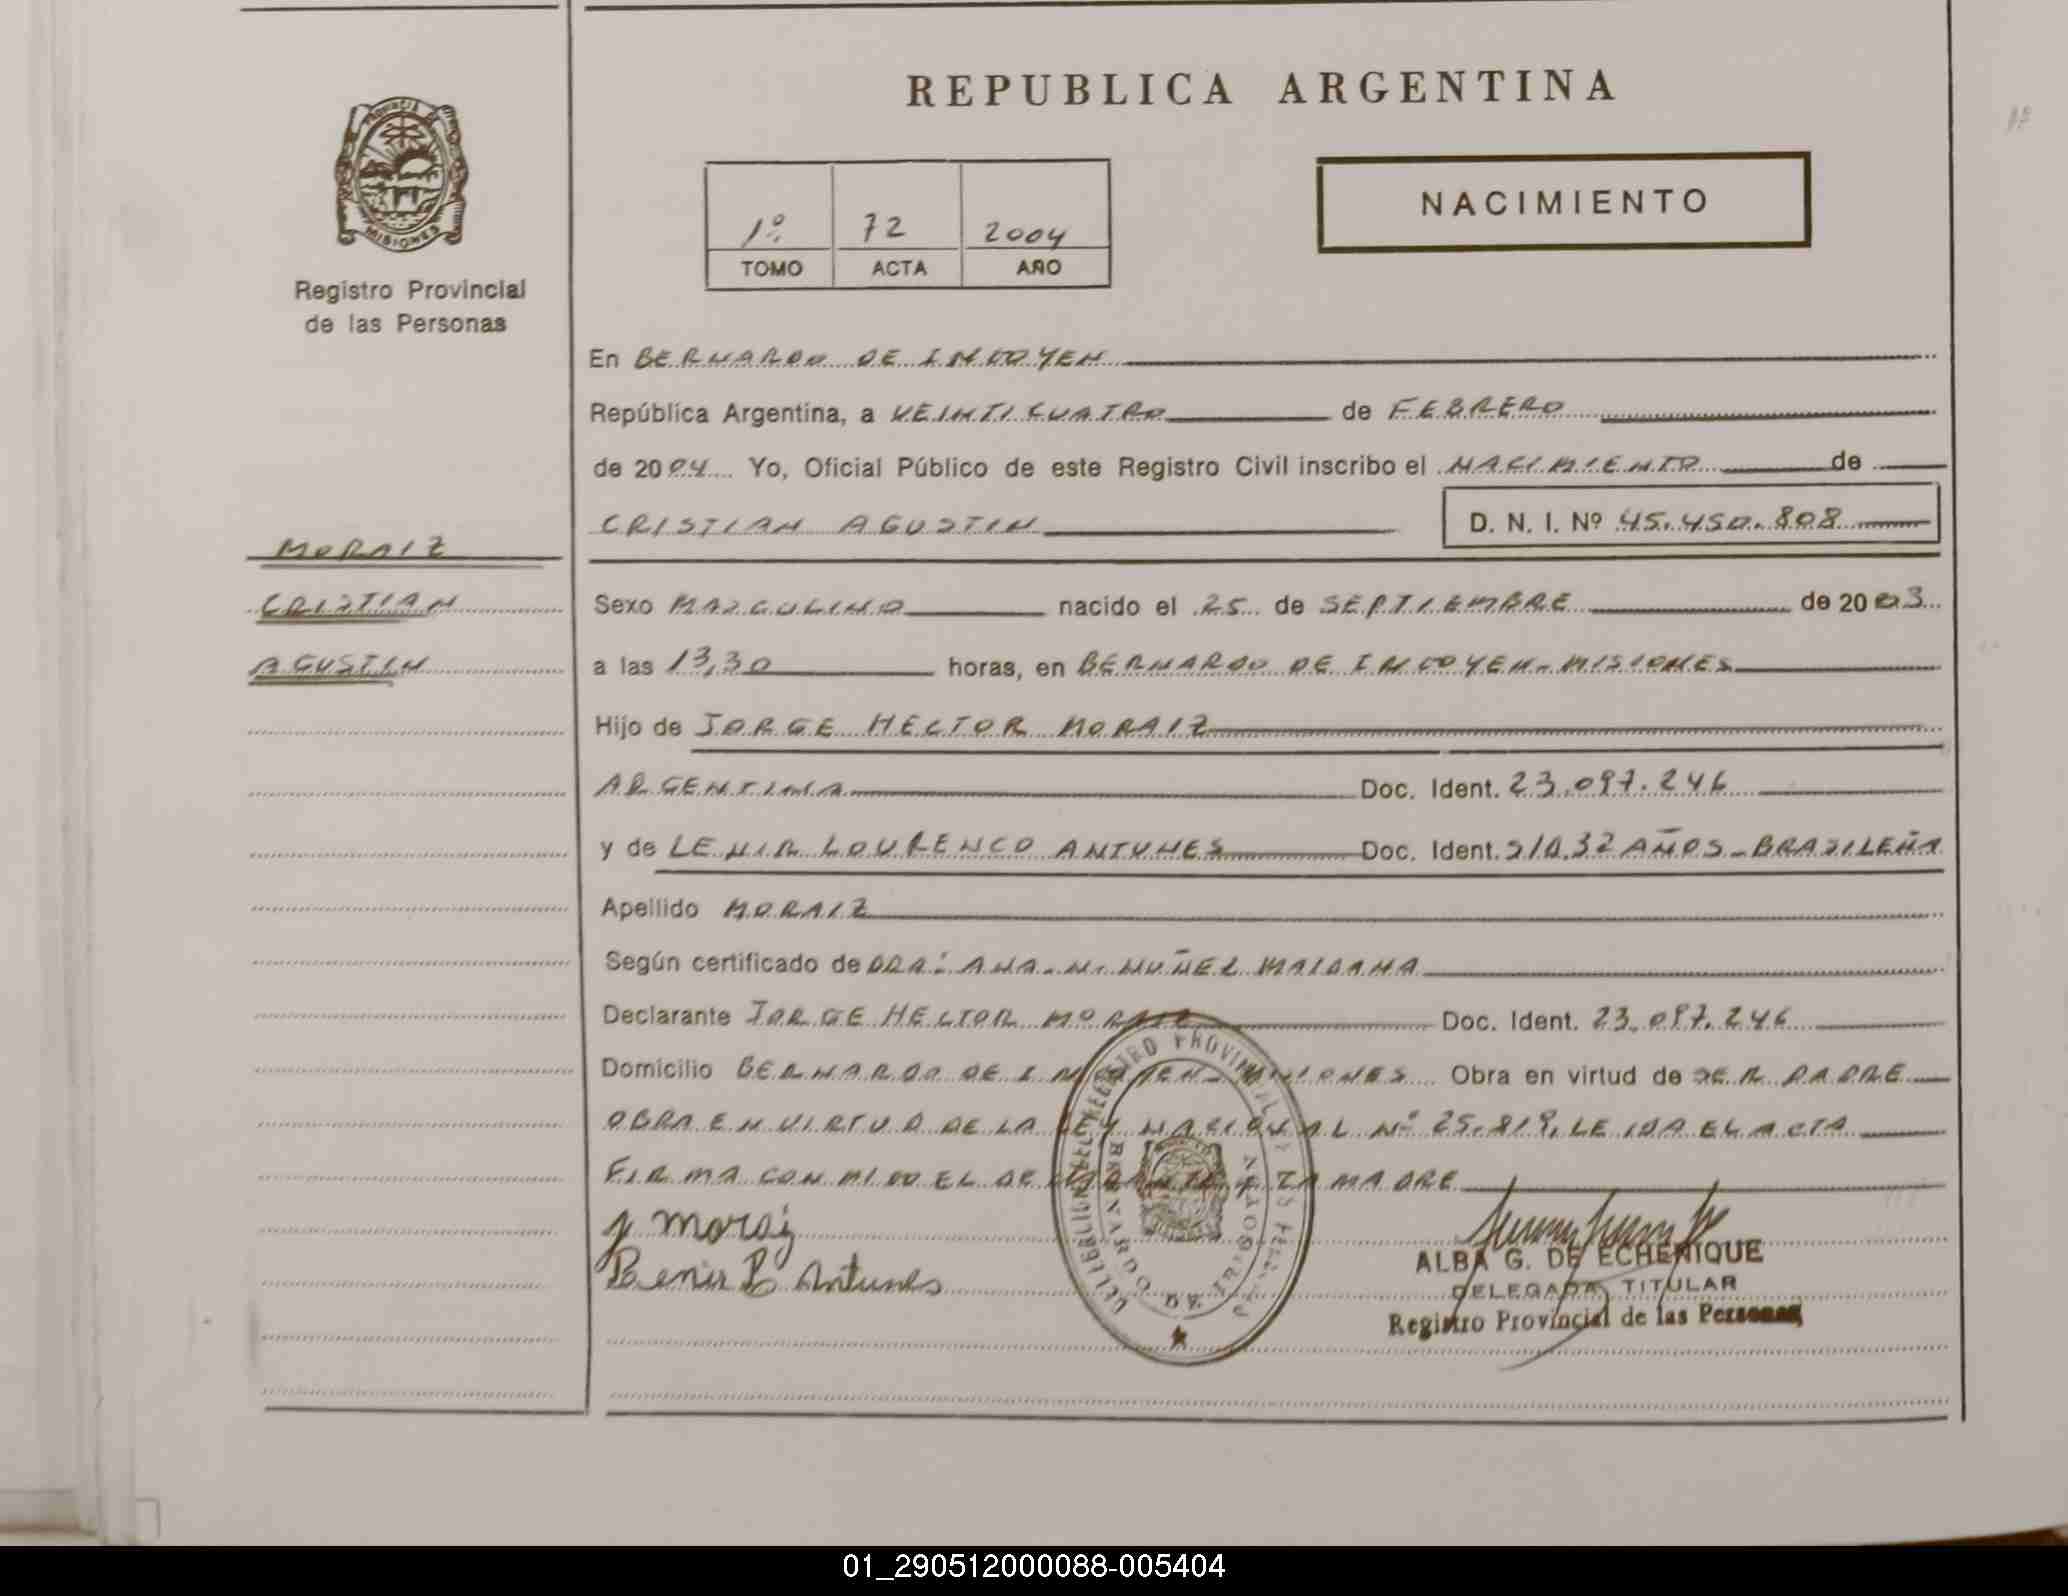 REPUBLICA ARGENTINA
PROVINCIA DE
MISIONES
Registro Provincial
de las Personas
1º 72 2004
TOMO ACTA AÑO
NACIMIENTO
En BERNARDO DE IRIGOYEN
República Argentina, a VEINTICUATRO de FEBRERO
de 2004 Yo, Oficial Público de este Registro Civil inscribo el NACIMIENTO de
CRISTIAN AGUSTIN D. N. I. Nº 45.450.808
MORAIZ
CRISTIAN
AGUSTIN
Sexo MASCULINO nacido el 25 de SEPTIEMBRE de 2003
a las 13,30 horas, en BERNARDO DE IRIGOYEN - MISIONES
Hijo de JORGE HECTOR MORAIZ
ARGENTINA Doc. Ident. 23.097.246
y de LENIR LOURENCO ANTUNES Doc. Ident. S/D.32 AÑOS - BRASILEÑA
Apellido MORAIZ
Según certificado de DRA: ANA. N. NUÑEZ MAIDANA
Declarante JORGE HECTOR MORAIZ Doc. Ident. 23.097.246
Domicilio BERNARDO DE IRIGOYEN - MISIONES Obra en virtud de SER PADRE
OBRA EN VIRTUD DE LA LEY NACIONAL Nº 25.819, LEIDA EL ACTA
FIRMA CONMIGO EL DECLARANTE Y LA MADRE
J Moraiz
Lenir L Antunes
ALBA G. DE ECHENIQUE
DELEGADA TITULAR
Registro Provincial de las Personas
01_290512000088-005404